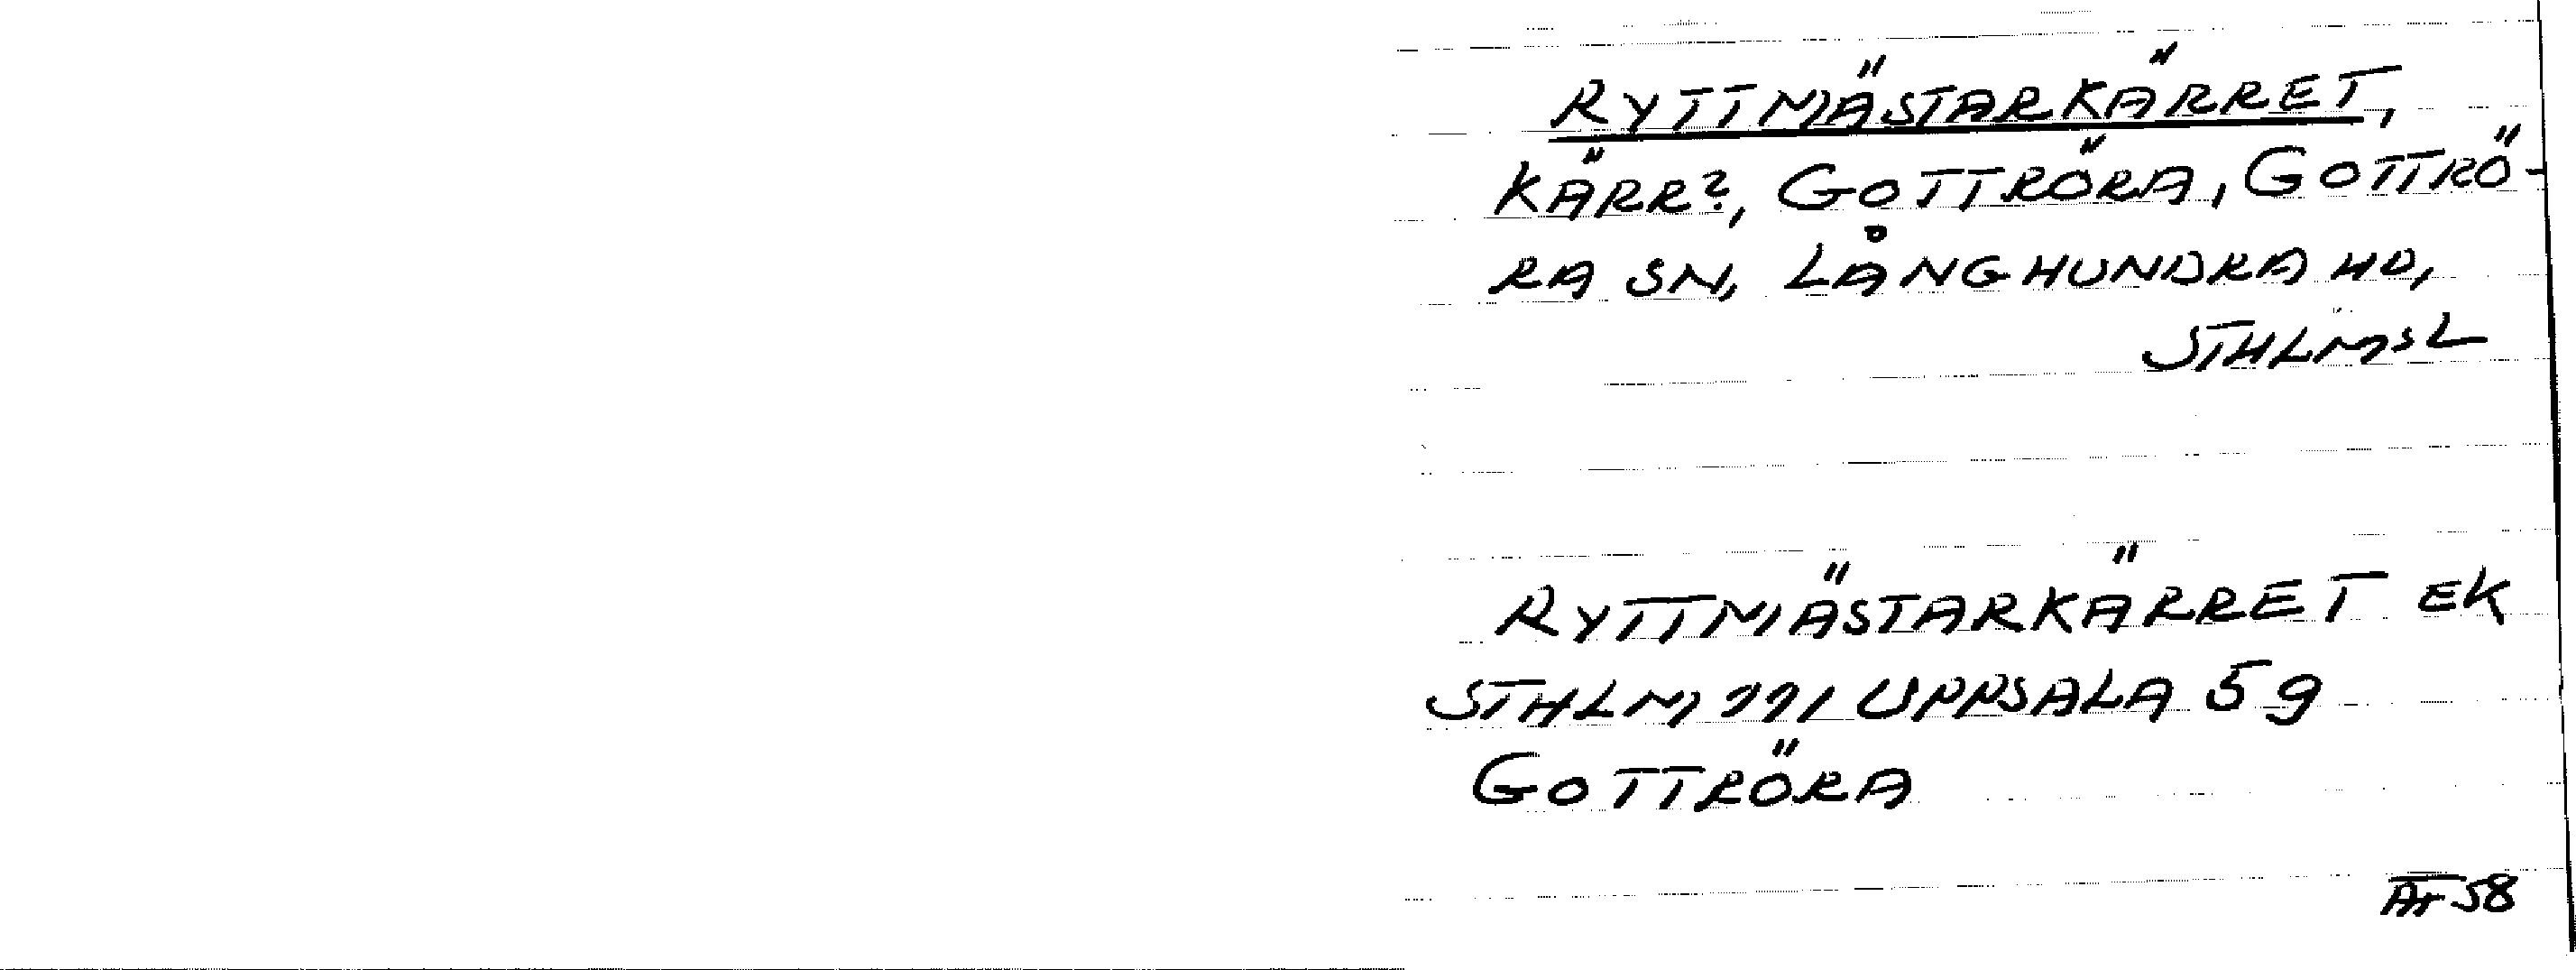 RYTTMÄSTARKÄRRET,
KÄRR?, GOTTRÖRA, GOTTRÖ-
RA SN, LÅNGHUNDRA HD,
STHLMSL
RYTTMÄSTARKÄRRET EK
STHLM 771 UPPSALA 59
GOTTRÖRA
58